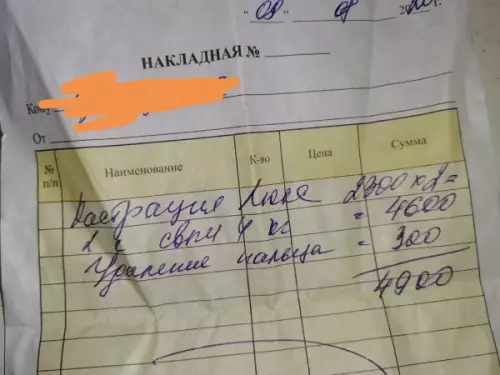 " 09 " 08 20 г.
НАКЛАДНАЯ №
Кому
От
№ п/п Наименование К-во Цена Сумма
Кастрация 2300 х 2 =
свыш 4 кг = 4600
Удаление пальца = 300
4900